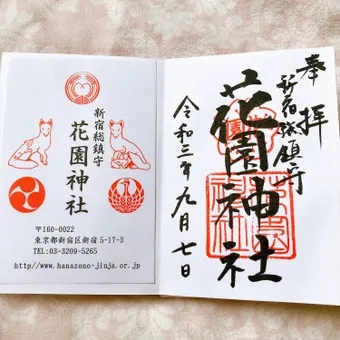 新宿総鎮守
花園神社
〒160-0022
東京都新宿区新宿5-17-3
TEL:03-3209-5265
http//www.hanazono-jinja.or.jp
奉拝
新宿総鎮守
花園神社
令和三年九月七日